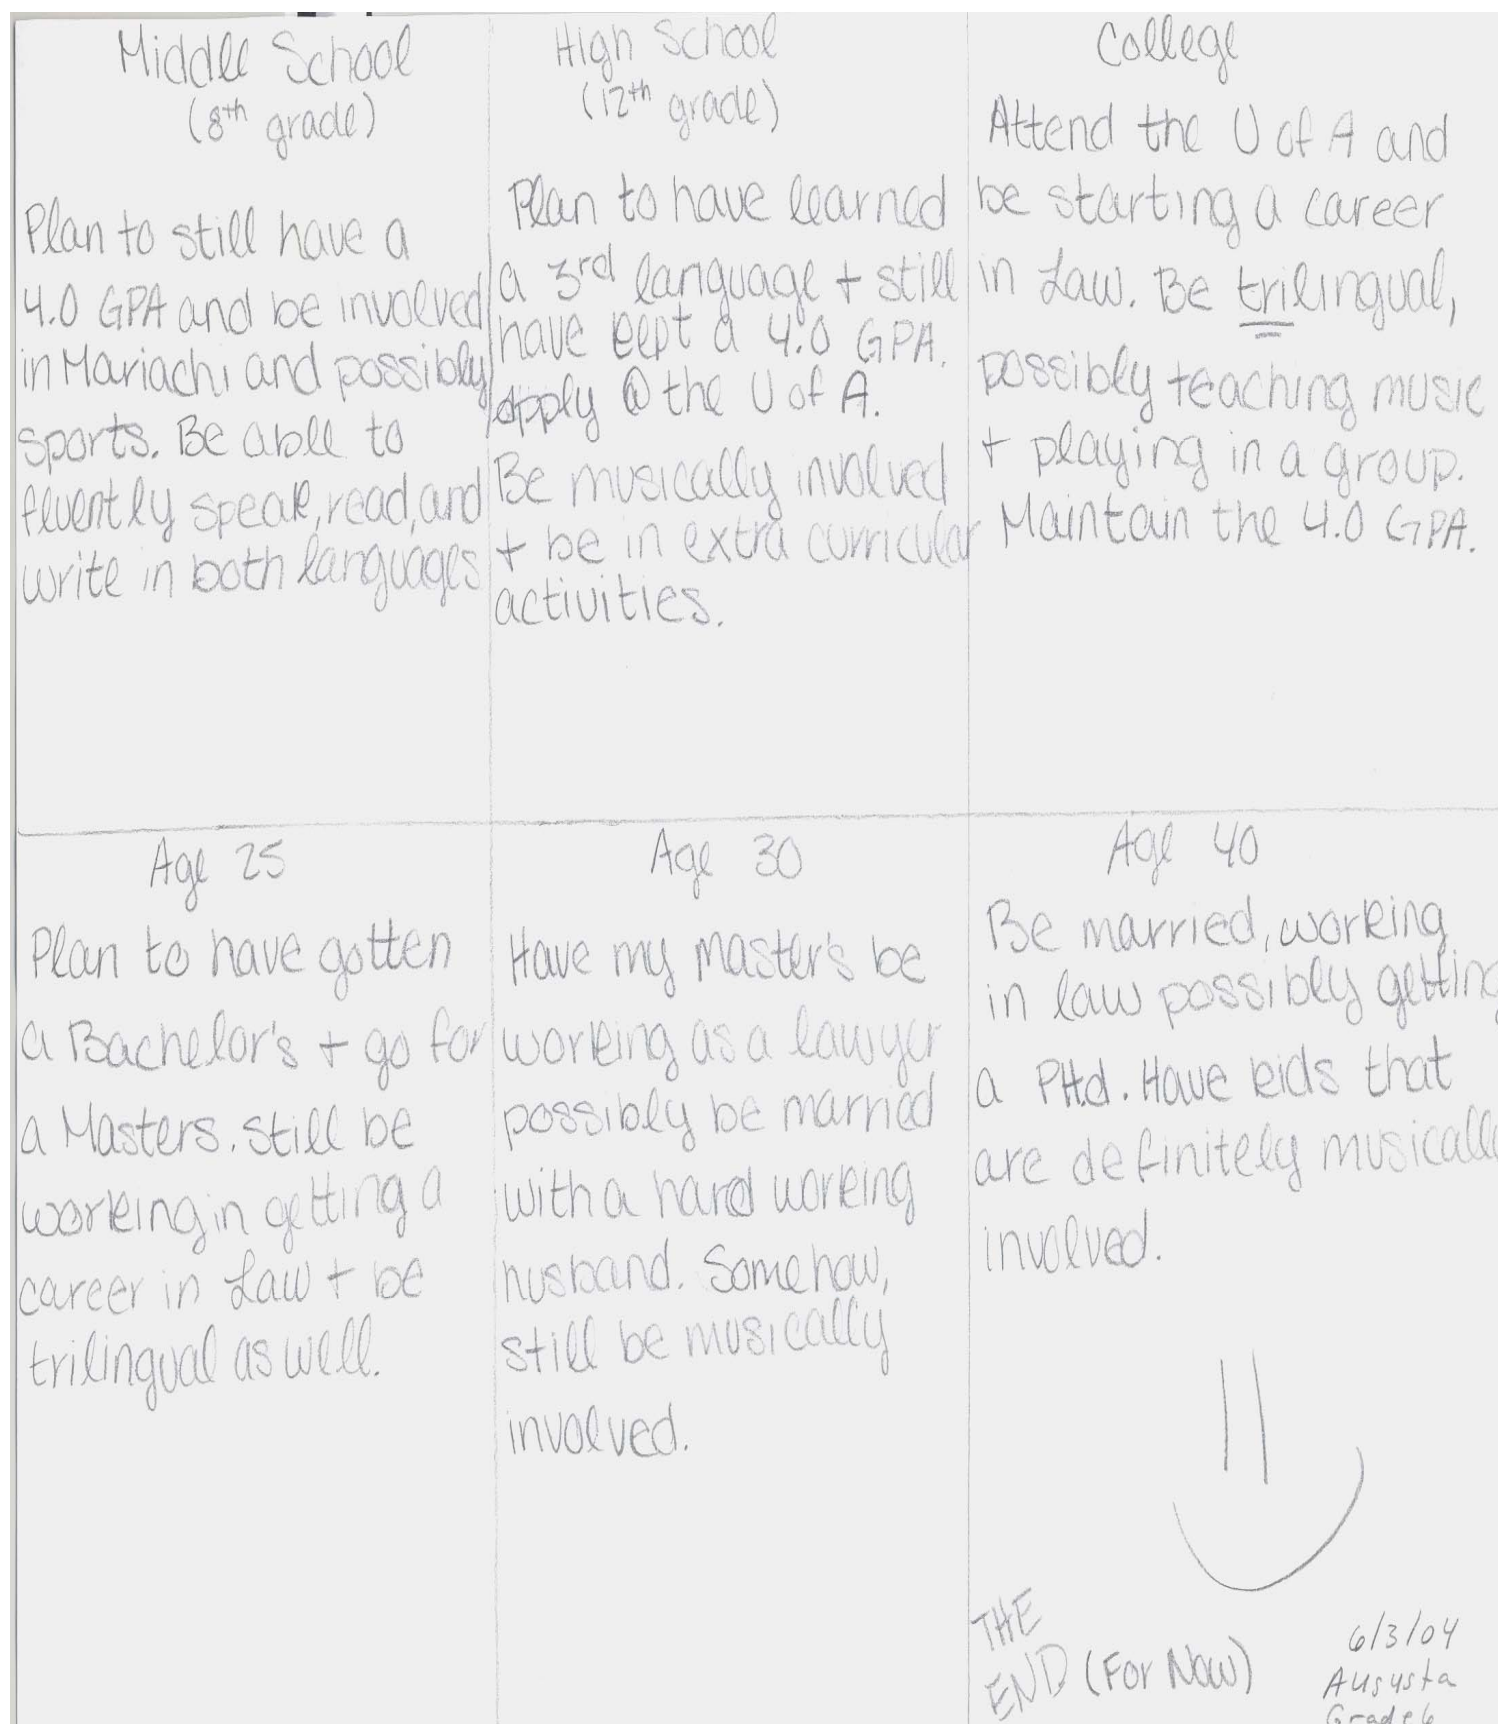 Middle School
(8th grade)
Plan to still have a
4.0 GPA and be involved
in Mariachi and possibly
sports. Be able to
fluently speak, read, and
write in both languages
High School
(12th grade)
Plan to have learned
a 3rd language + still
have kept a 4.0 GPA.
Apply @ the U of A.
Be musically involved
+ be in extra curricular
activities.
College
Attend the U of A and
be starting a career
in Law. Be trilingual,
possibly teaching music
+ playing in a group.
Maintain the 4.0 GPA.
Age 25
Plan to have gotten
a Bachelor's + go for
a Masters. Still be
working in getting a
career in Law + be
trilingual as well.
Age 30
Have my master's be
working as a lawyer
possibly be married
with a hard working
husband. Somehow,
still be musically
involved.
Age 40
Be married, working
in law possibly getting
a PH.d. Have kids that
are definitely musically
involved.
THE
END (For Now)
6/3/04
Augusta
Grade 6